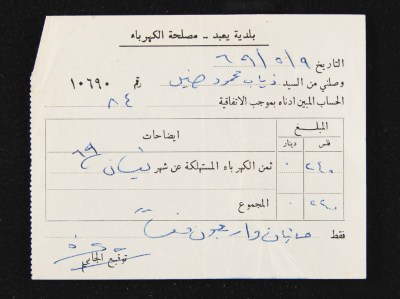 بلدية يعبد - مصلحة الكهرباء
التاريخ ٩/٥/٦٩
وصلني من السيد ذياب محمود رقم ١٠٦٩٠
الحساب المبين ادناه بموجب الاتفاقية ٨٤
المبلغ ايضاحات
فلس دينار
٢٤٠ ٠ ثمن الكهرباء المستهلكة عن شهر نيسان ٦٩
٢٤٠ ٠ المجموع
فقط مائتان واربعون فلساً
توقيع الجابي